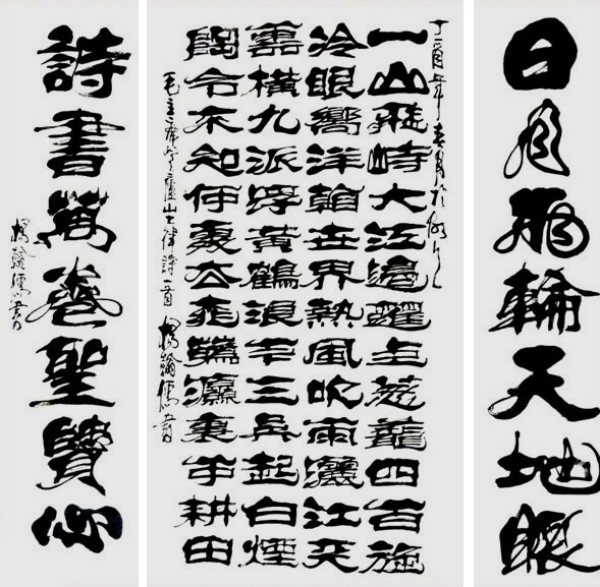 日月兩輪天地眼
丁酉年春月於
一山飛峙大江邊躍上蔥龍四百旋
冷眼嚮洋看世界熱風吹雨灑江天
雲橫九派浮黃鶴浪下三吳起白煙
陶令不知何處去桃花源裏可耕田
毛主席登廬山七律詩一首 楊翰儒書
詩書萬卷聖賢心
楊翰儒書